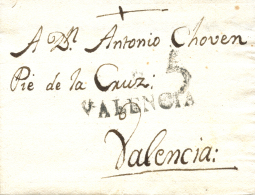 A Dn. Antonio Choven
Pie de la Cruz
5
VALENCIA
Valencia: